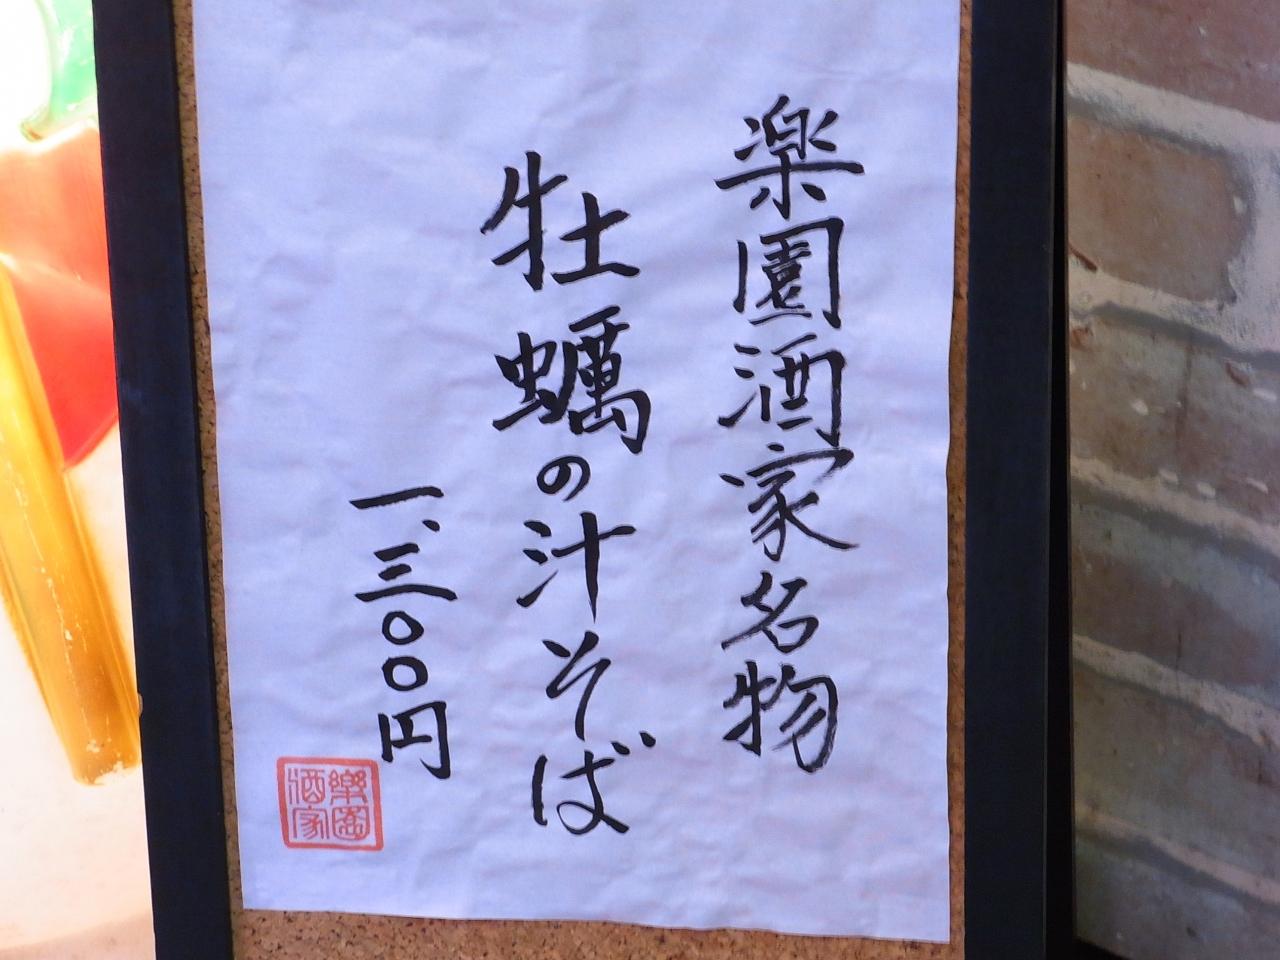 楽園酒家名物
牡蠣の汁そば
一、三〇〇円
樂園
酒家